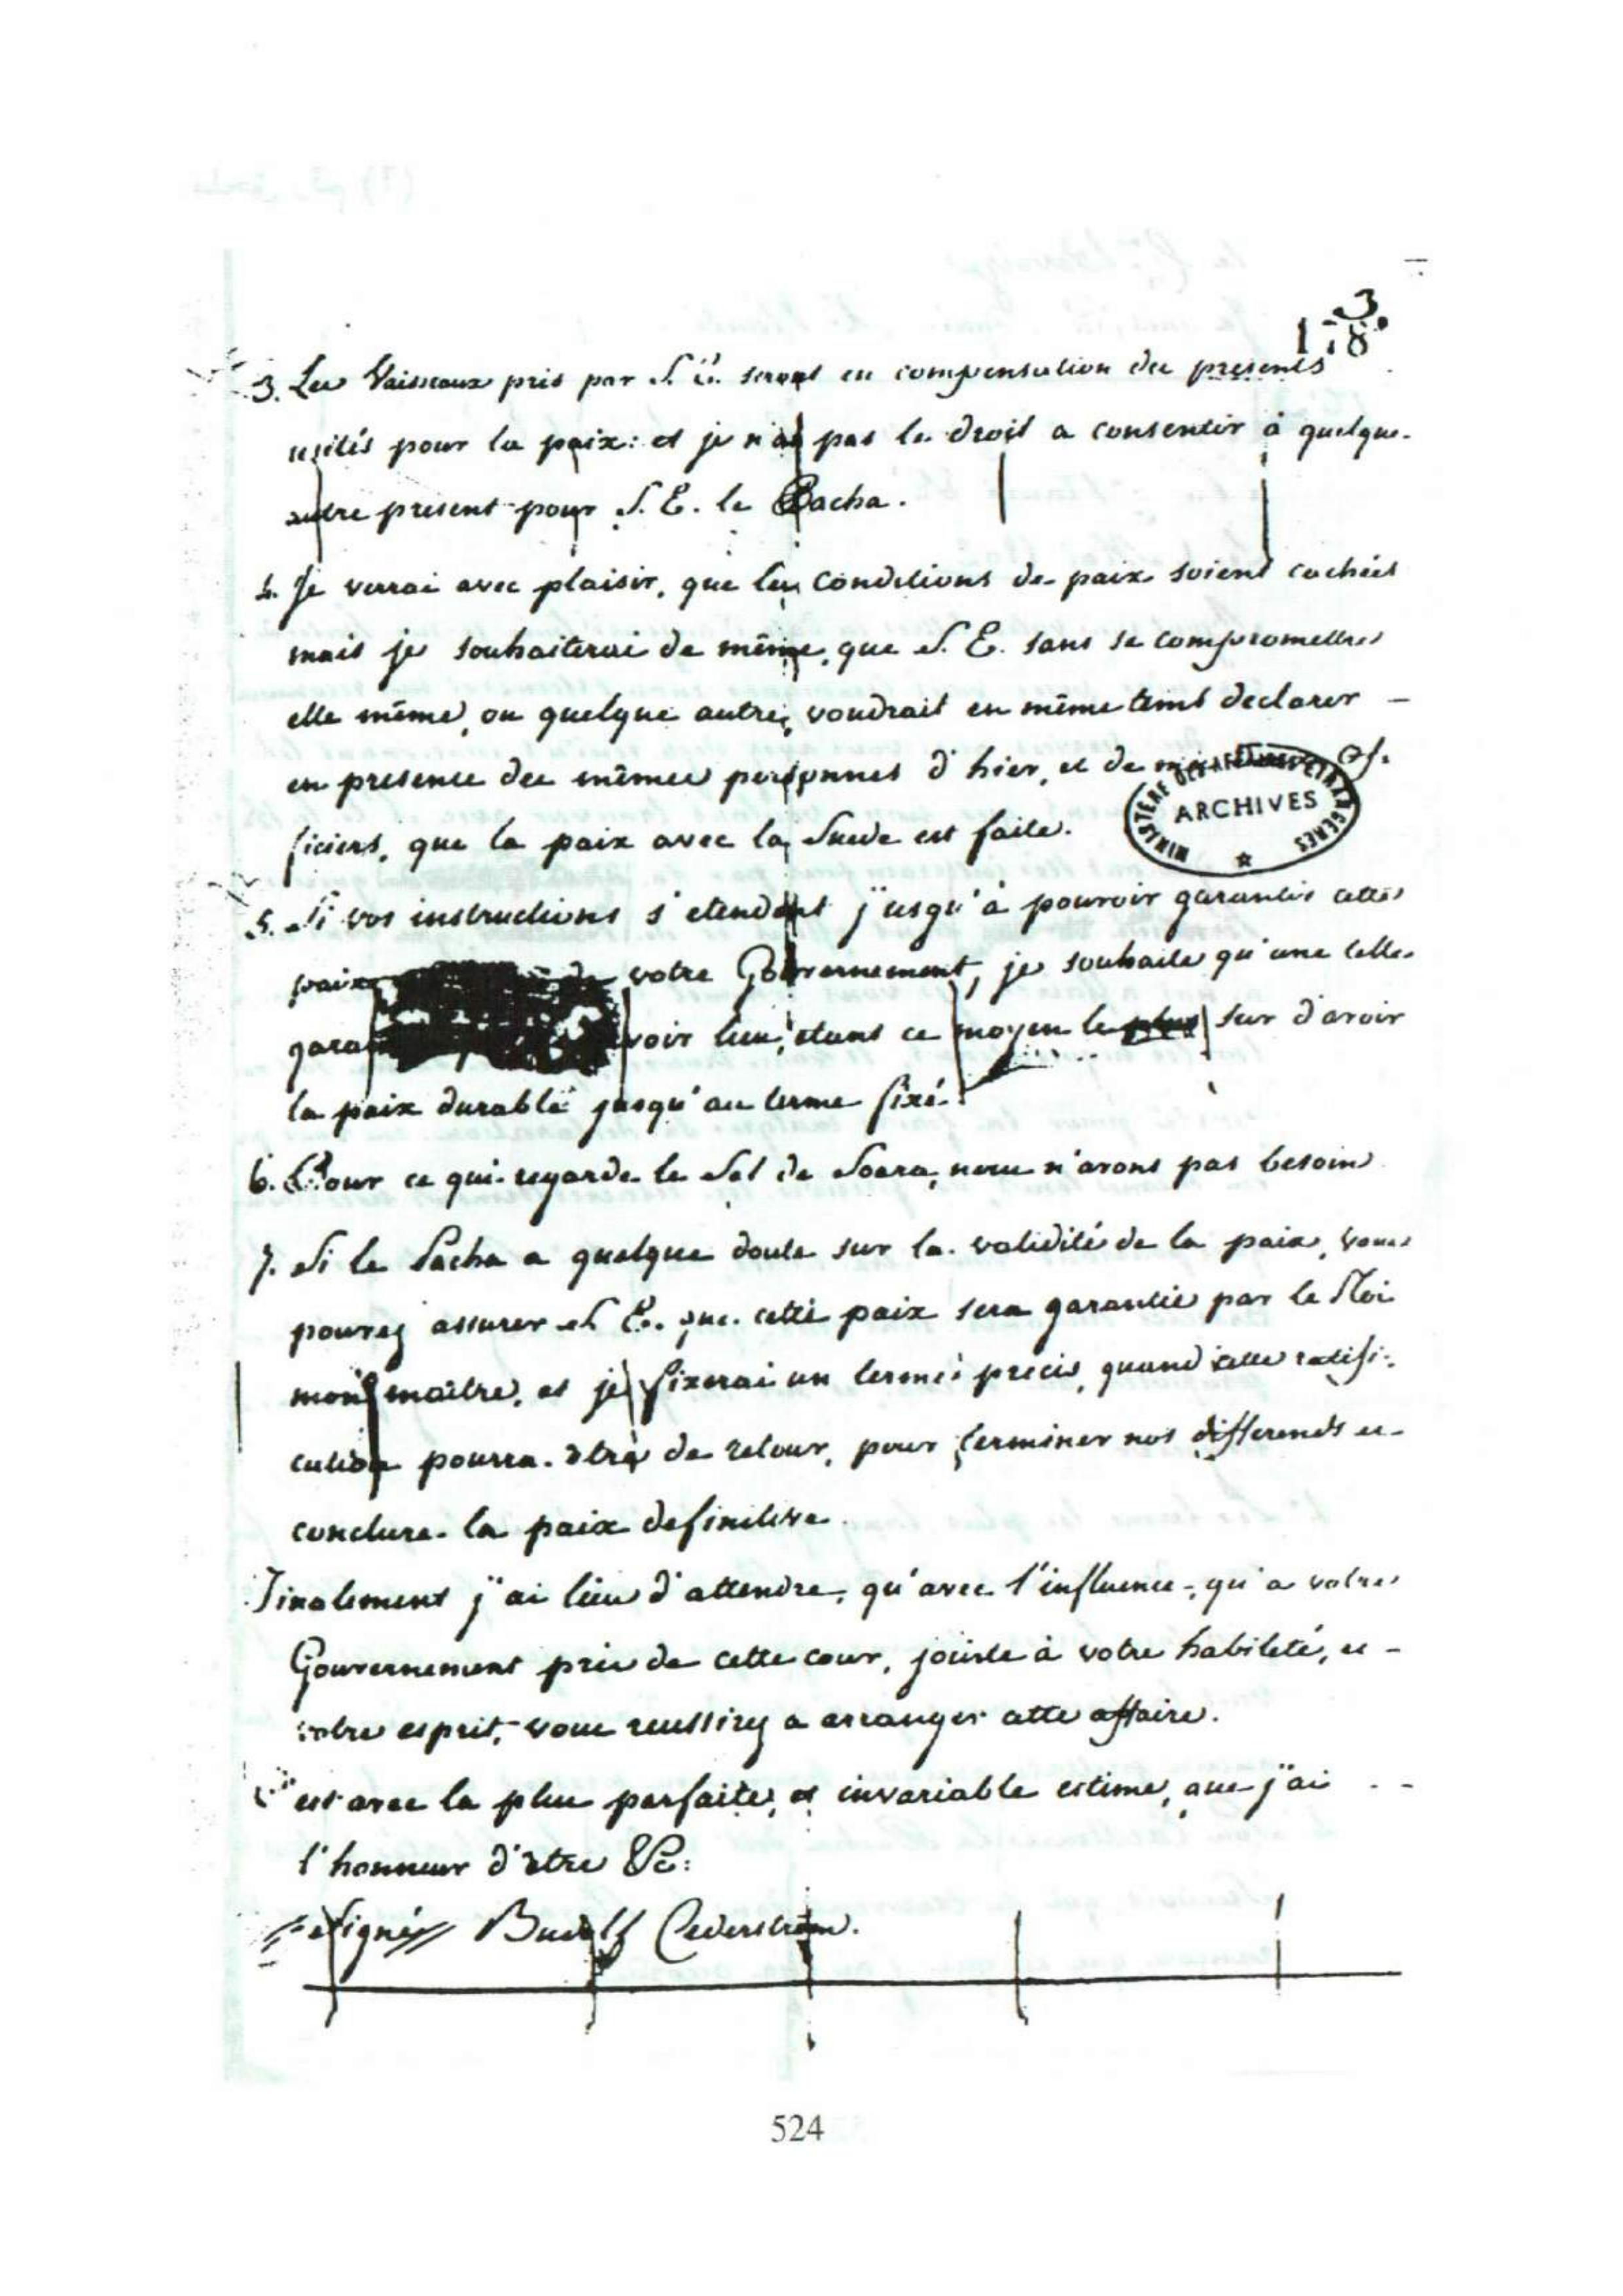 3
178
3. Les Vaisseaux pris par S. E. seront en compensation des presents
usités pour la paix: et je n'ai pas le droit a consentir à quelque
autre present pour S. E. le Pacha.
4. Je verrai avec plaisir, que les conditions de paix soient cachées
mais je souhaiterai de même, que S. E. sans se compromettre
elle même, ou quelque autre, voudrait en même tems declarer
en presence des mêmes personnes d'hier, et de mes Of-
ficiers, que la paix avec la Suede est faite.
MINISTÈRE DES AFFAIRES ETRANGERES
ARCHIVES
5. Si vos instructions s'etendent jusqu'à pouvoir garantir cette
paix votre Gouvernement, je souhaite qu'une telle
gara voir lieu, etant ce moyen le plus sur d'avoir
la paix durable jusqu'au terme fixé.
6. Pour ce qui regarde le Sel de Soara, nous n'avons pas besoin
7. Si le Pacha a quelque doute sur la validité de la paix, vous
pourez assurer S. E. que cette paix sera garantie par le Roi
mon maître, et je fixerai un terme precis, quand cette ratifi-
cation pourra être de retour, pour terminer nos differends et
conclure la paix definitive.
Finalement j'ai lieu d'attendre, qu'avec l'influence, qu'a votre
Gouvernement près de cette cour, jointe à votre habileté, et
votre esprit, vous reussirez a arranger cette affaire.
C'est avec la plus parfaite, et invariable estime, que j'ai
l'honneur d'être &c:
Signé Cederström.
524